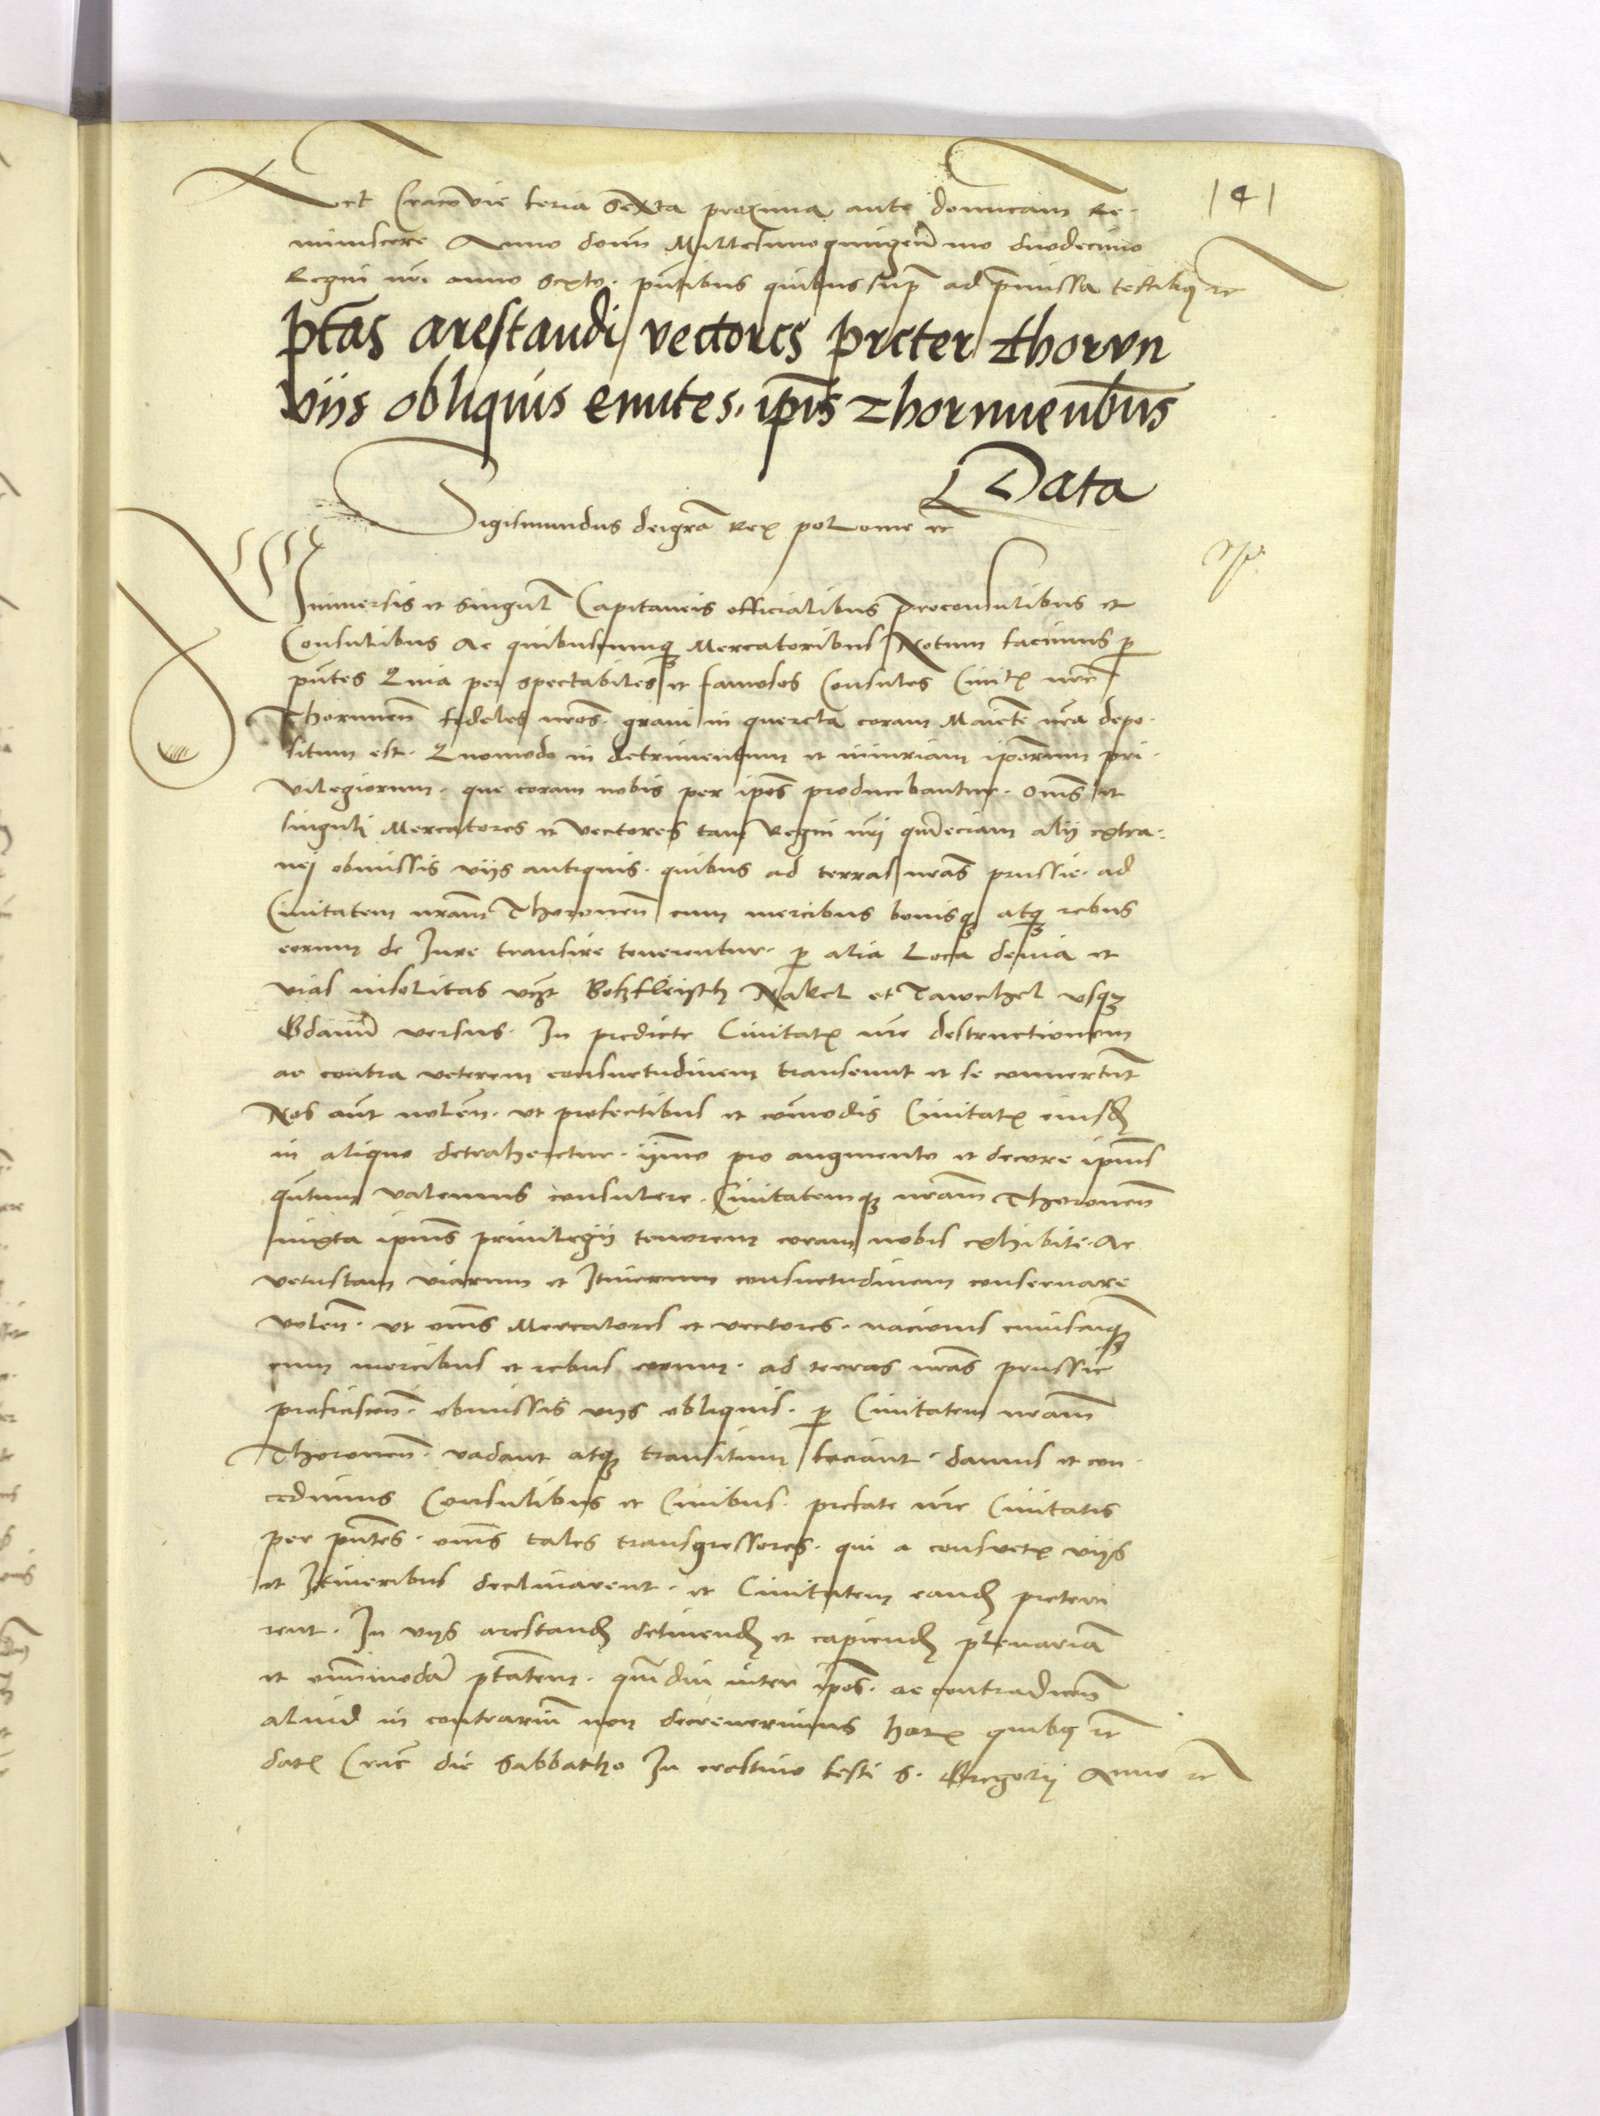 141
Act Cracovie feria sexta proxima ante dominicam Re-
miniscere Anno domī Millesimoquingeñmo duodecimo
Regni nri anno sexto. pñtibus quibus supᷓ ad p̄missa testibꝫ etc
Ptās arestandi vectores preter Thorvn
viis obliquis eūntes. ipīs Thorunenbūs
Data
Sigismundus deigrā Rex polonie etc
Universis et singul Capitaneis officialibus proconsulibus et
Consulibus Ac quibuscunqꝫ Mercatoribus Notum facimus ꝑ
pñtes Quia per spectabiles et famosos Consules Civitꝭ nrē
Thorunen̄ fideles nros. gravi in querela coram Maiestē nrā depo-
situm est. Quomodo in detrimentum et iniuriam ipsorum pri-
vilegiorum. que coram nobis per ipōs producebantur. omēs et
singuli Mercatores et vectores tam Regni nri qm̄eciam alij extra-
nej obmissis vijs antiquis. quibus ad terras nrās prussie. ad
Civitatem nrām Thoronen̄ cum mercibus bonisqꝫ atqꝫ rebus
eorum de Jure transire tenerentur. ꝑ alia Loca devia et
vias insolitas vcʒt Nakel et usqꝫ
Gdanum̄ versus. In predicte Civitatꝭ nre destructionem
ac contra veterem consuetudinem transeunt et se convertūt
Nos aūt nolen̄. ut profectibus et cōmodis Civitatꝭ eiusdꝫ
in aliquo detraheretur. ymmo pro augmento et decore ipīus
qūtum valemus consulere. Civitatemqꝫ nrām Thoronen̄
iuxta ipīus privilegij tenorem coram nobis exhibiti. Ac
vetustam viarum et Itinerum consuetudinem conservare
volen̄. ut omēs Mercatores et vectores. nacionis cuiuscūqꝫ
cum mercibus et rebus eorum. ad terras nrās prussie
proficiscen̄. obmissis vijs obliquis. ꝑ Civitatem nrām
Thoronen̄. vadant atqꝫ transitum faciant. damus et con-
cedimus Consulibus et Civibus. prefate nre Civitatis
per pñtes. omēs tales transgressores. qui a consuetꝭ vijs
et Itineribus declinarent. et Civitatem eandꝫ preteri
rent. In vijs arestandꝫ detinendꝫ et capiendꝫ plenariā
et om̄imodam̄ ptātem. qm̄diu inter ipōs. ac contradicen̄
aliud in contrariū non decreverimus harꝭ quibꝫ etc
datꝭ Crac̄ die Sabbatho In crastino festi S. Gregorij Anno etc